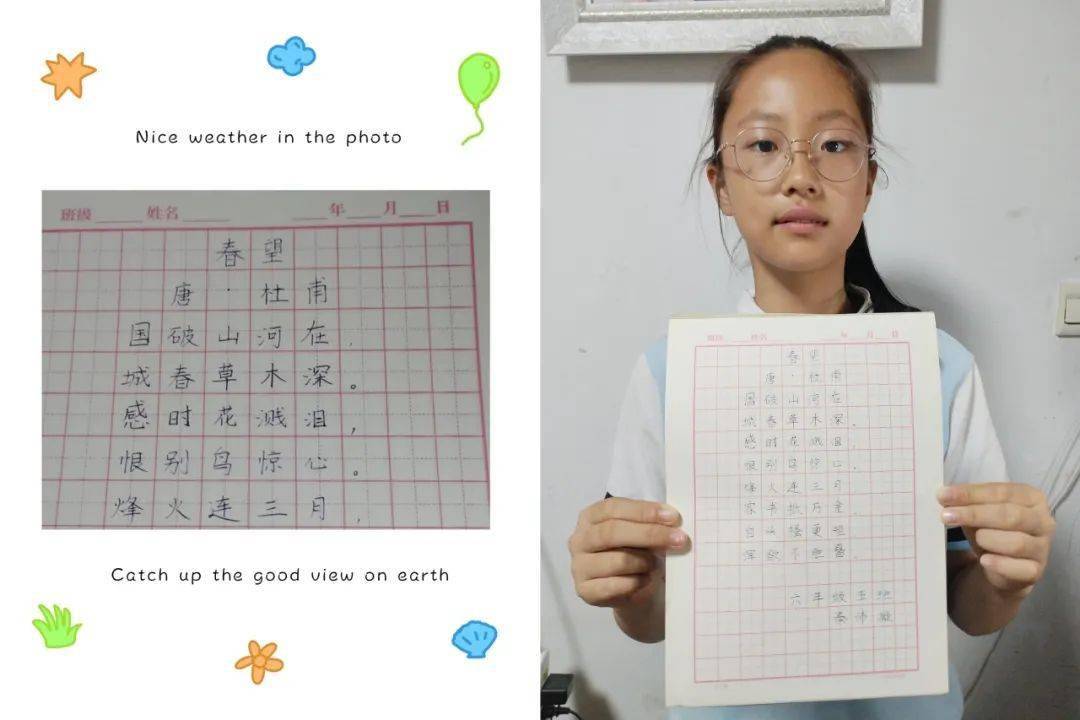 Nice weather in the photo
班级____姓名____ ____年____月____日
春望
唐·杜甫
国破山河在，
城春草木深。
感时花溅泪，
恨别鸟惊心。
烽火连三月，
Catch up the good view on earth
班级 姓名 年 月 日
春望
唐·杜甫
国破山河在
城春草木深。
感时花溅泪，
恨别鸟惊心。
烽火连三月
家书抵万金。
白头搔更短
浑欲不胜簪。
六年级五班